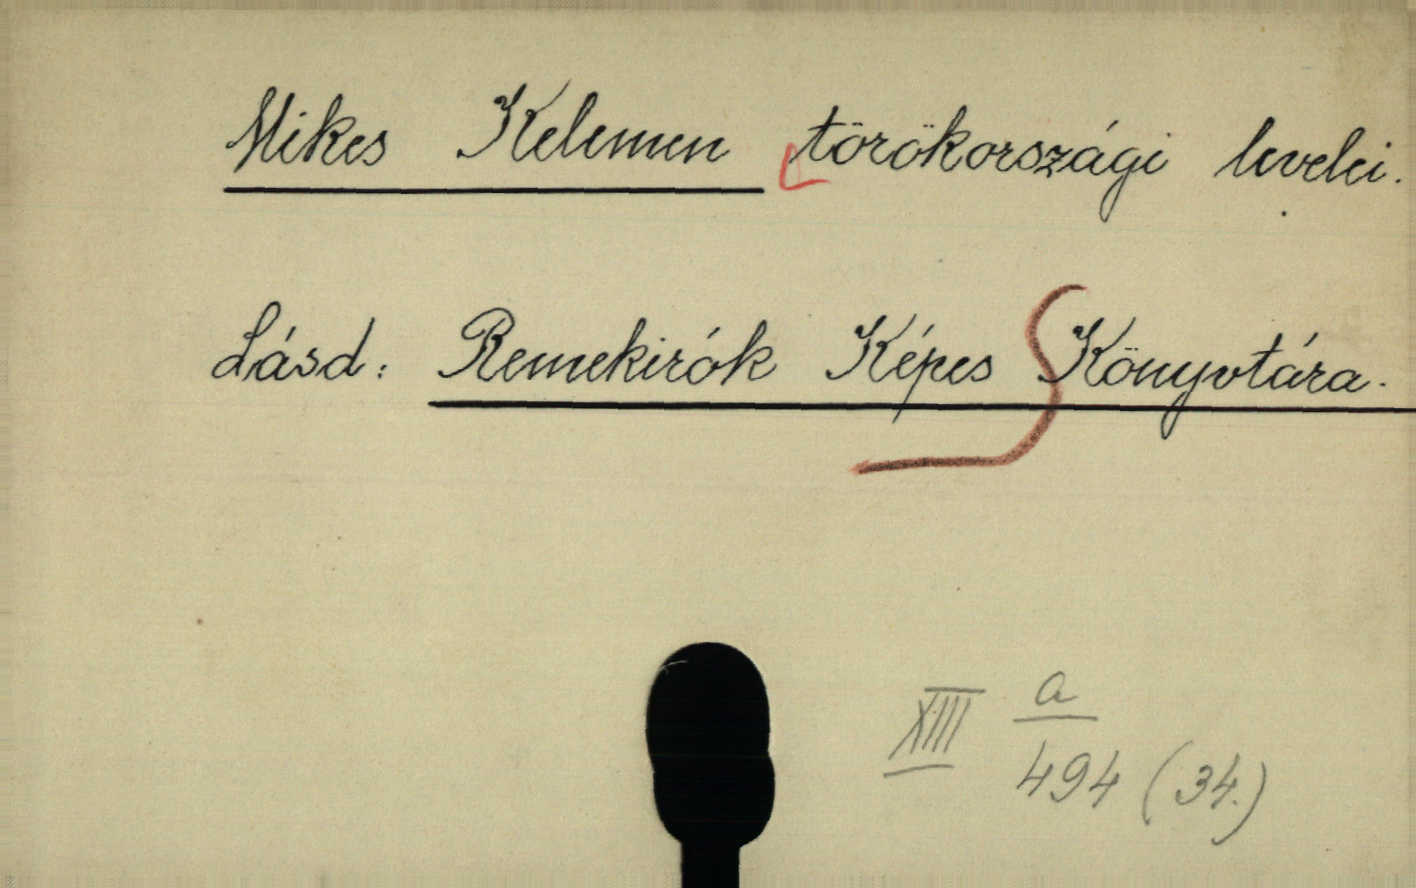 Mikes Kelemen törökországi levelei.
Lásd: Remekirók Képes Könyvtára.
XIII a
494 (34.)